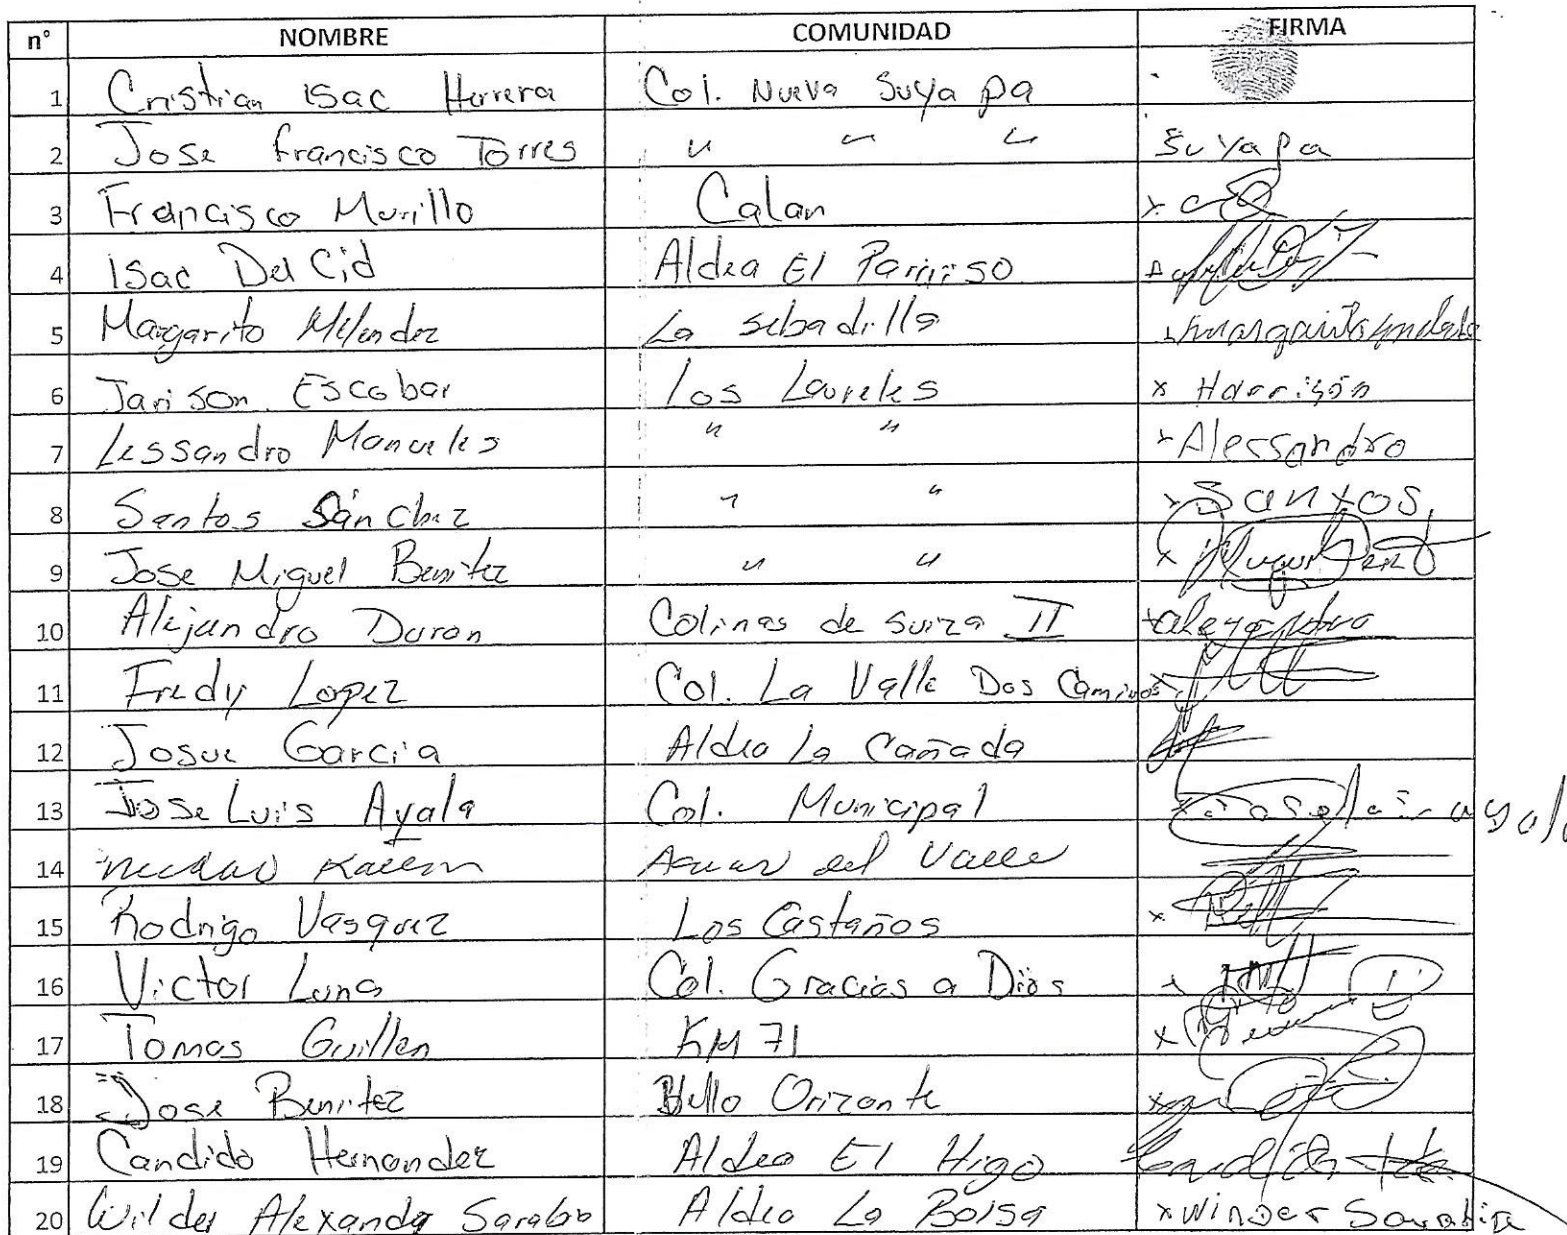 n° NOMBRE COMUNIDAD FIRMA
1 Cristian Isac Herrera Col. Nueva Suyapa
2 Jose Francisco Torres " " " Suyapa
3 Francisco Murillo Calan x
4 Isac Del Cid Aldea El Paraiso
5 Margarito Melendez La sebadilla
6 Jarison Escobar Los Laureles x Harrison
7 Lessandro Manueles " " x Alessandro
8 Santos Sánchez " " x Santos
9 Jose Miguel Benitez " " x
10 Alejandro Duron Colinas de Suiza II
11 Fredy Lopez Col. La Valle Dos Caminos x
12 Josue Garcia Aldea La Cañada
13 Jose Luis Ayala Col. Municipal x
14 del Valle
15 Rodrigo Vasquez Los Castaños x
16 Victor Luna Col. Gracias a Dios x
17 Tomas Guillen KM 71 x
18 Jose Benitez Bello Orizonte x
19 Candido Hernandez Aldea El Higo
20 Wilder Alexander Aldea La Bolsa x